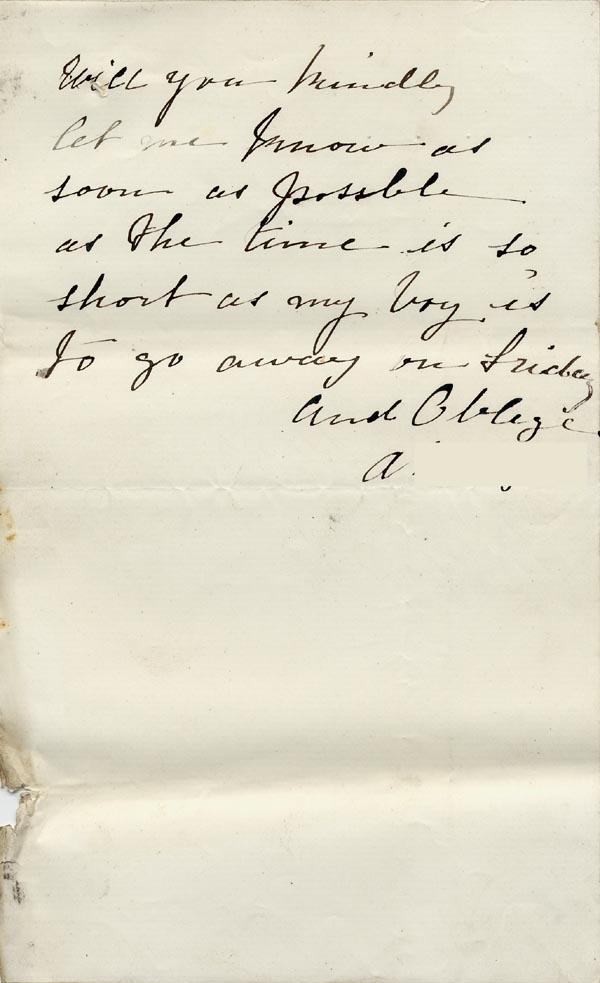 Will you kindly
let me know as
soon as possble
as the time is so
short as my boy is
to go away on Friday
and Oblige
A.